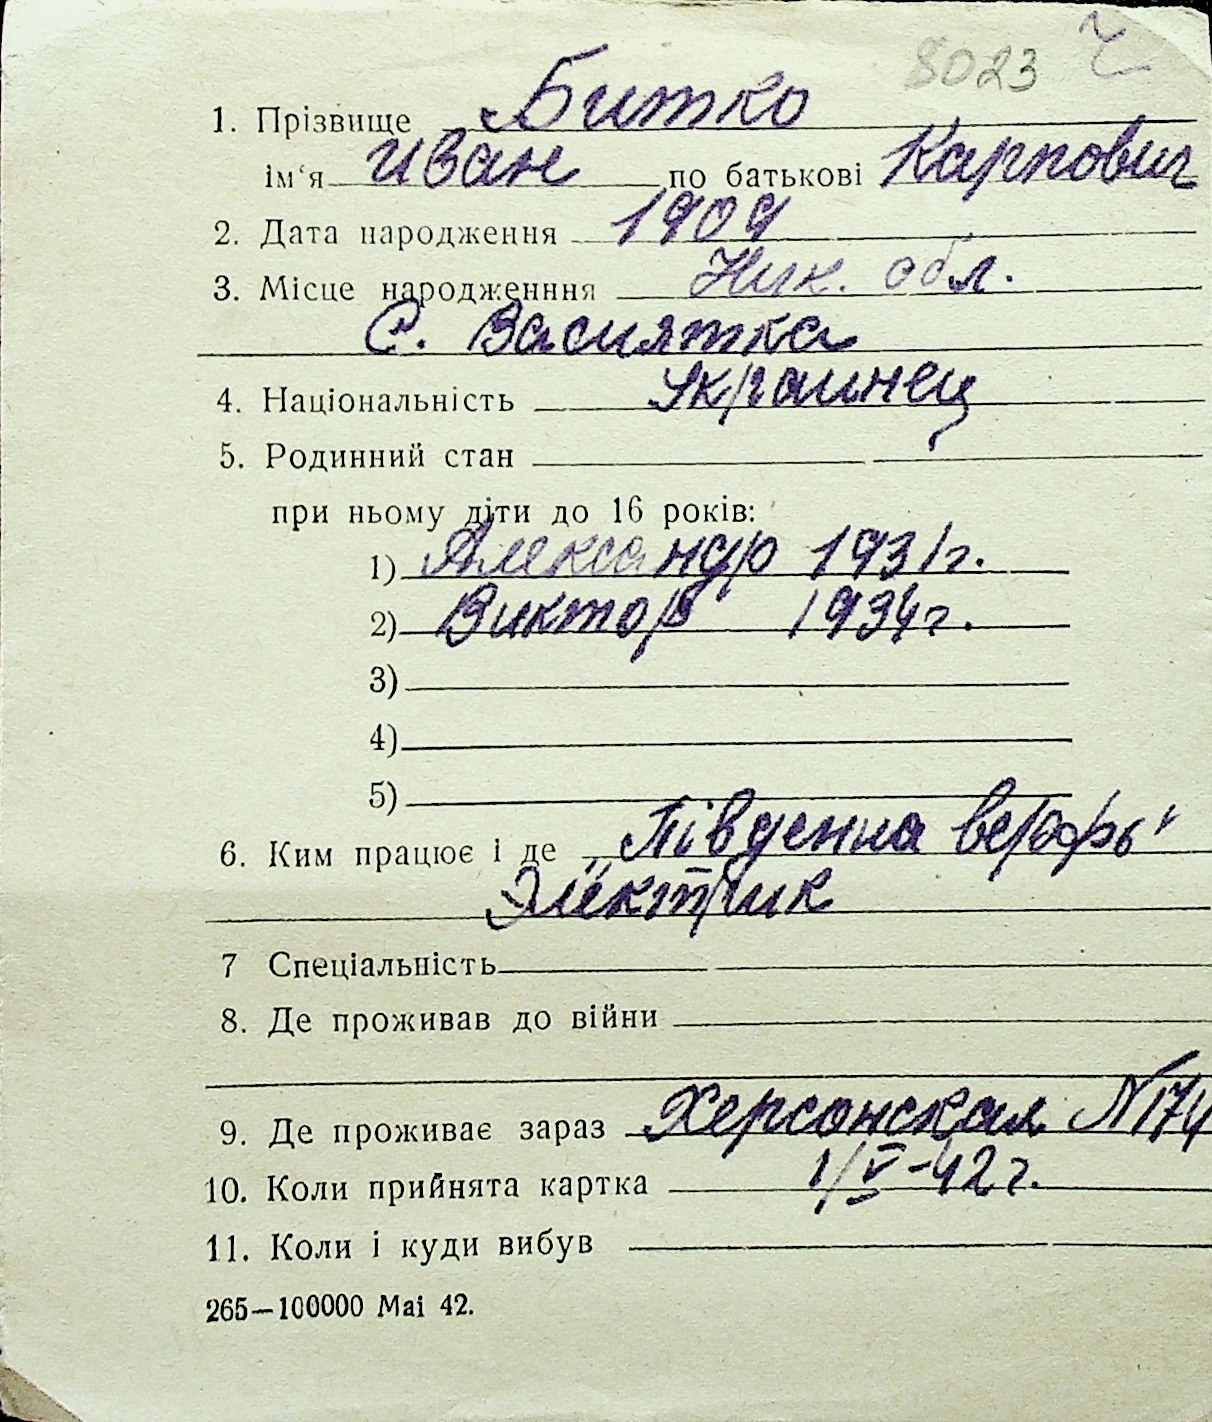 8023
1. Прізвище Битко
ім'я Иван по батькові Карпович
2. Дата народження 1909
3. Місце народженння Ник. обл.
С. Васиятка
4. Національність Украинец
5. Родинний стан
при ньому діти до 16 років:
1) Александр 1931г.
2) Виктор 1934г.
3)
4)
5)
6. Ким працює і де „Південна верфь"
Электрик
7 Спеціальність
8. Де проживав до війни
9. Де проживає зараз Херсонская №174
10. Коли прийнята картка 1/V-42г.
11. Коли і куди вибув
265—100000 Маі 42.